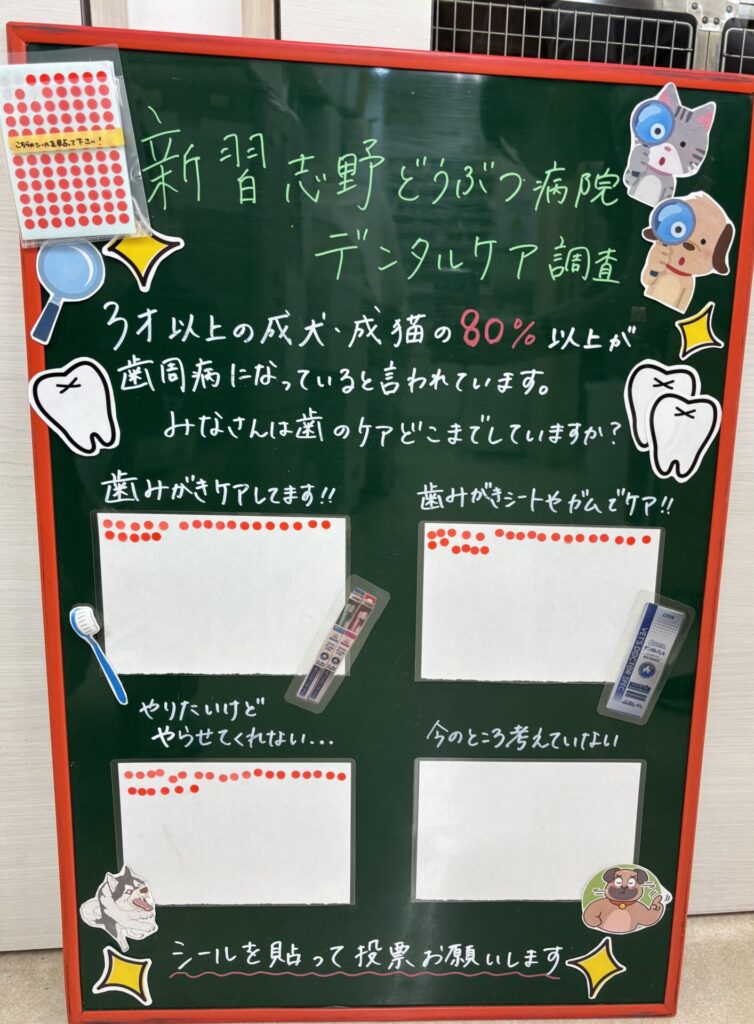 こちらのシールを貼って下さい!
新習志野どうぶつ病院
デンタルケア調査
3才以上の成犬・成猫の80%以上が
歯周病になっていると言われています。
みなさんは歯のケアどこまでしていますか?
歯みがきケアしてます!!
歯みがきシートやガムでケア!!
LION
やりたいけど
やらせてくれない...
今のところ考えていない
シールを貼って投票お願いします